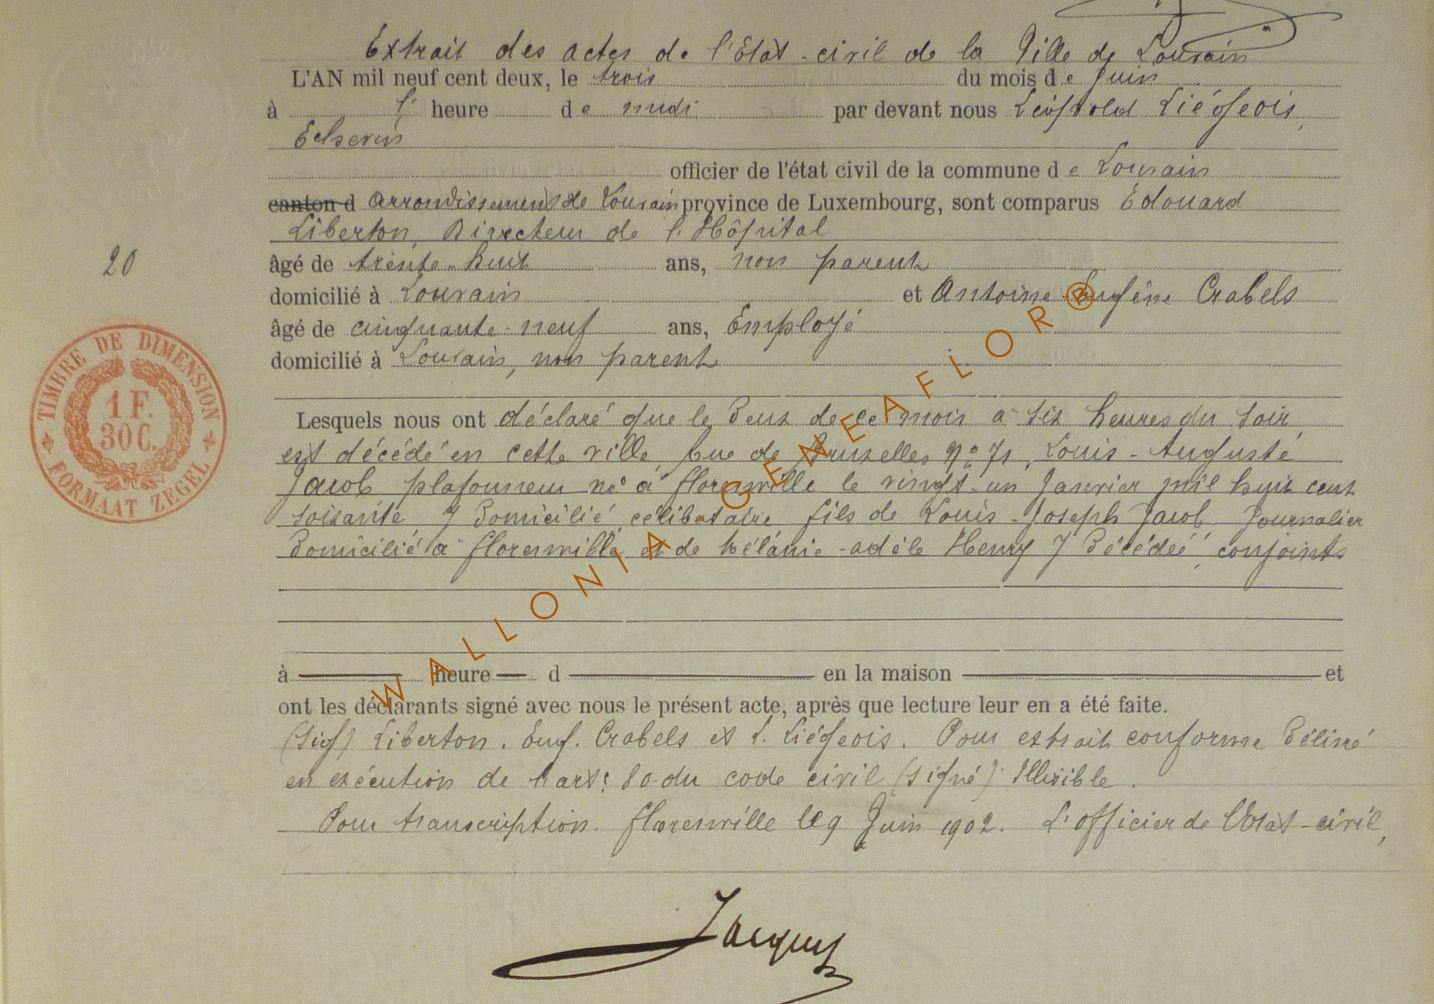 Extrait des actes de l'Etat-civil de la Ville de Louvain
L'AN mil neuf cent deux, le trois du mois de Juin
à heure de midi par devant nous Léopold Liégeois,
Echevin
officier de l'état civil de la commune de Louvain
canton d arrondissement de Louvain province de Luxembourg, sont comparus Edouard
Liberton, Directeur de l'Hôpital
20
âgé de trente-huit ans, non parent
domicilié à Louvain et Antoine-Eugène Crabels
âgé de cinquante-neuf ans, Employé
domicilié à Louvain, non parent
TIMBRE DE DIMENSION
1 F.
30 C.
FORMAAT ZEGEL
Lesquels nous ont déclaré que le Deux de ce mois à six heures du soir
est décédé en cette ville Rue de Bruxelles N° 71, Louis-Auguste
Jacob, plafonneur né à Florenville le vingt-un Janvier mil huit cent
soixante, y Domicilié, célibataire, fils de Louis-Joseph Jacob, Journalier
Domicilié à Florenville, et de Mélanie-adèle Henry y Décédée, conjoints
à heure d en la maison et
ont les déclarants signé avec nous le présent acte, après que lecture leur en a été faite.
(Sig) Liberton. Eug. Crabels et L. Liégeois. Pour extrait conforme Délivré
en exécution de l'art: 80 du code civil (signé) Illisible.
Pour transcription. Florenville le 9 Juin 1902. L'officier de l'Etat-civil,
Jacques
WALLONIA GENEAFLOR®